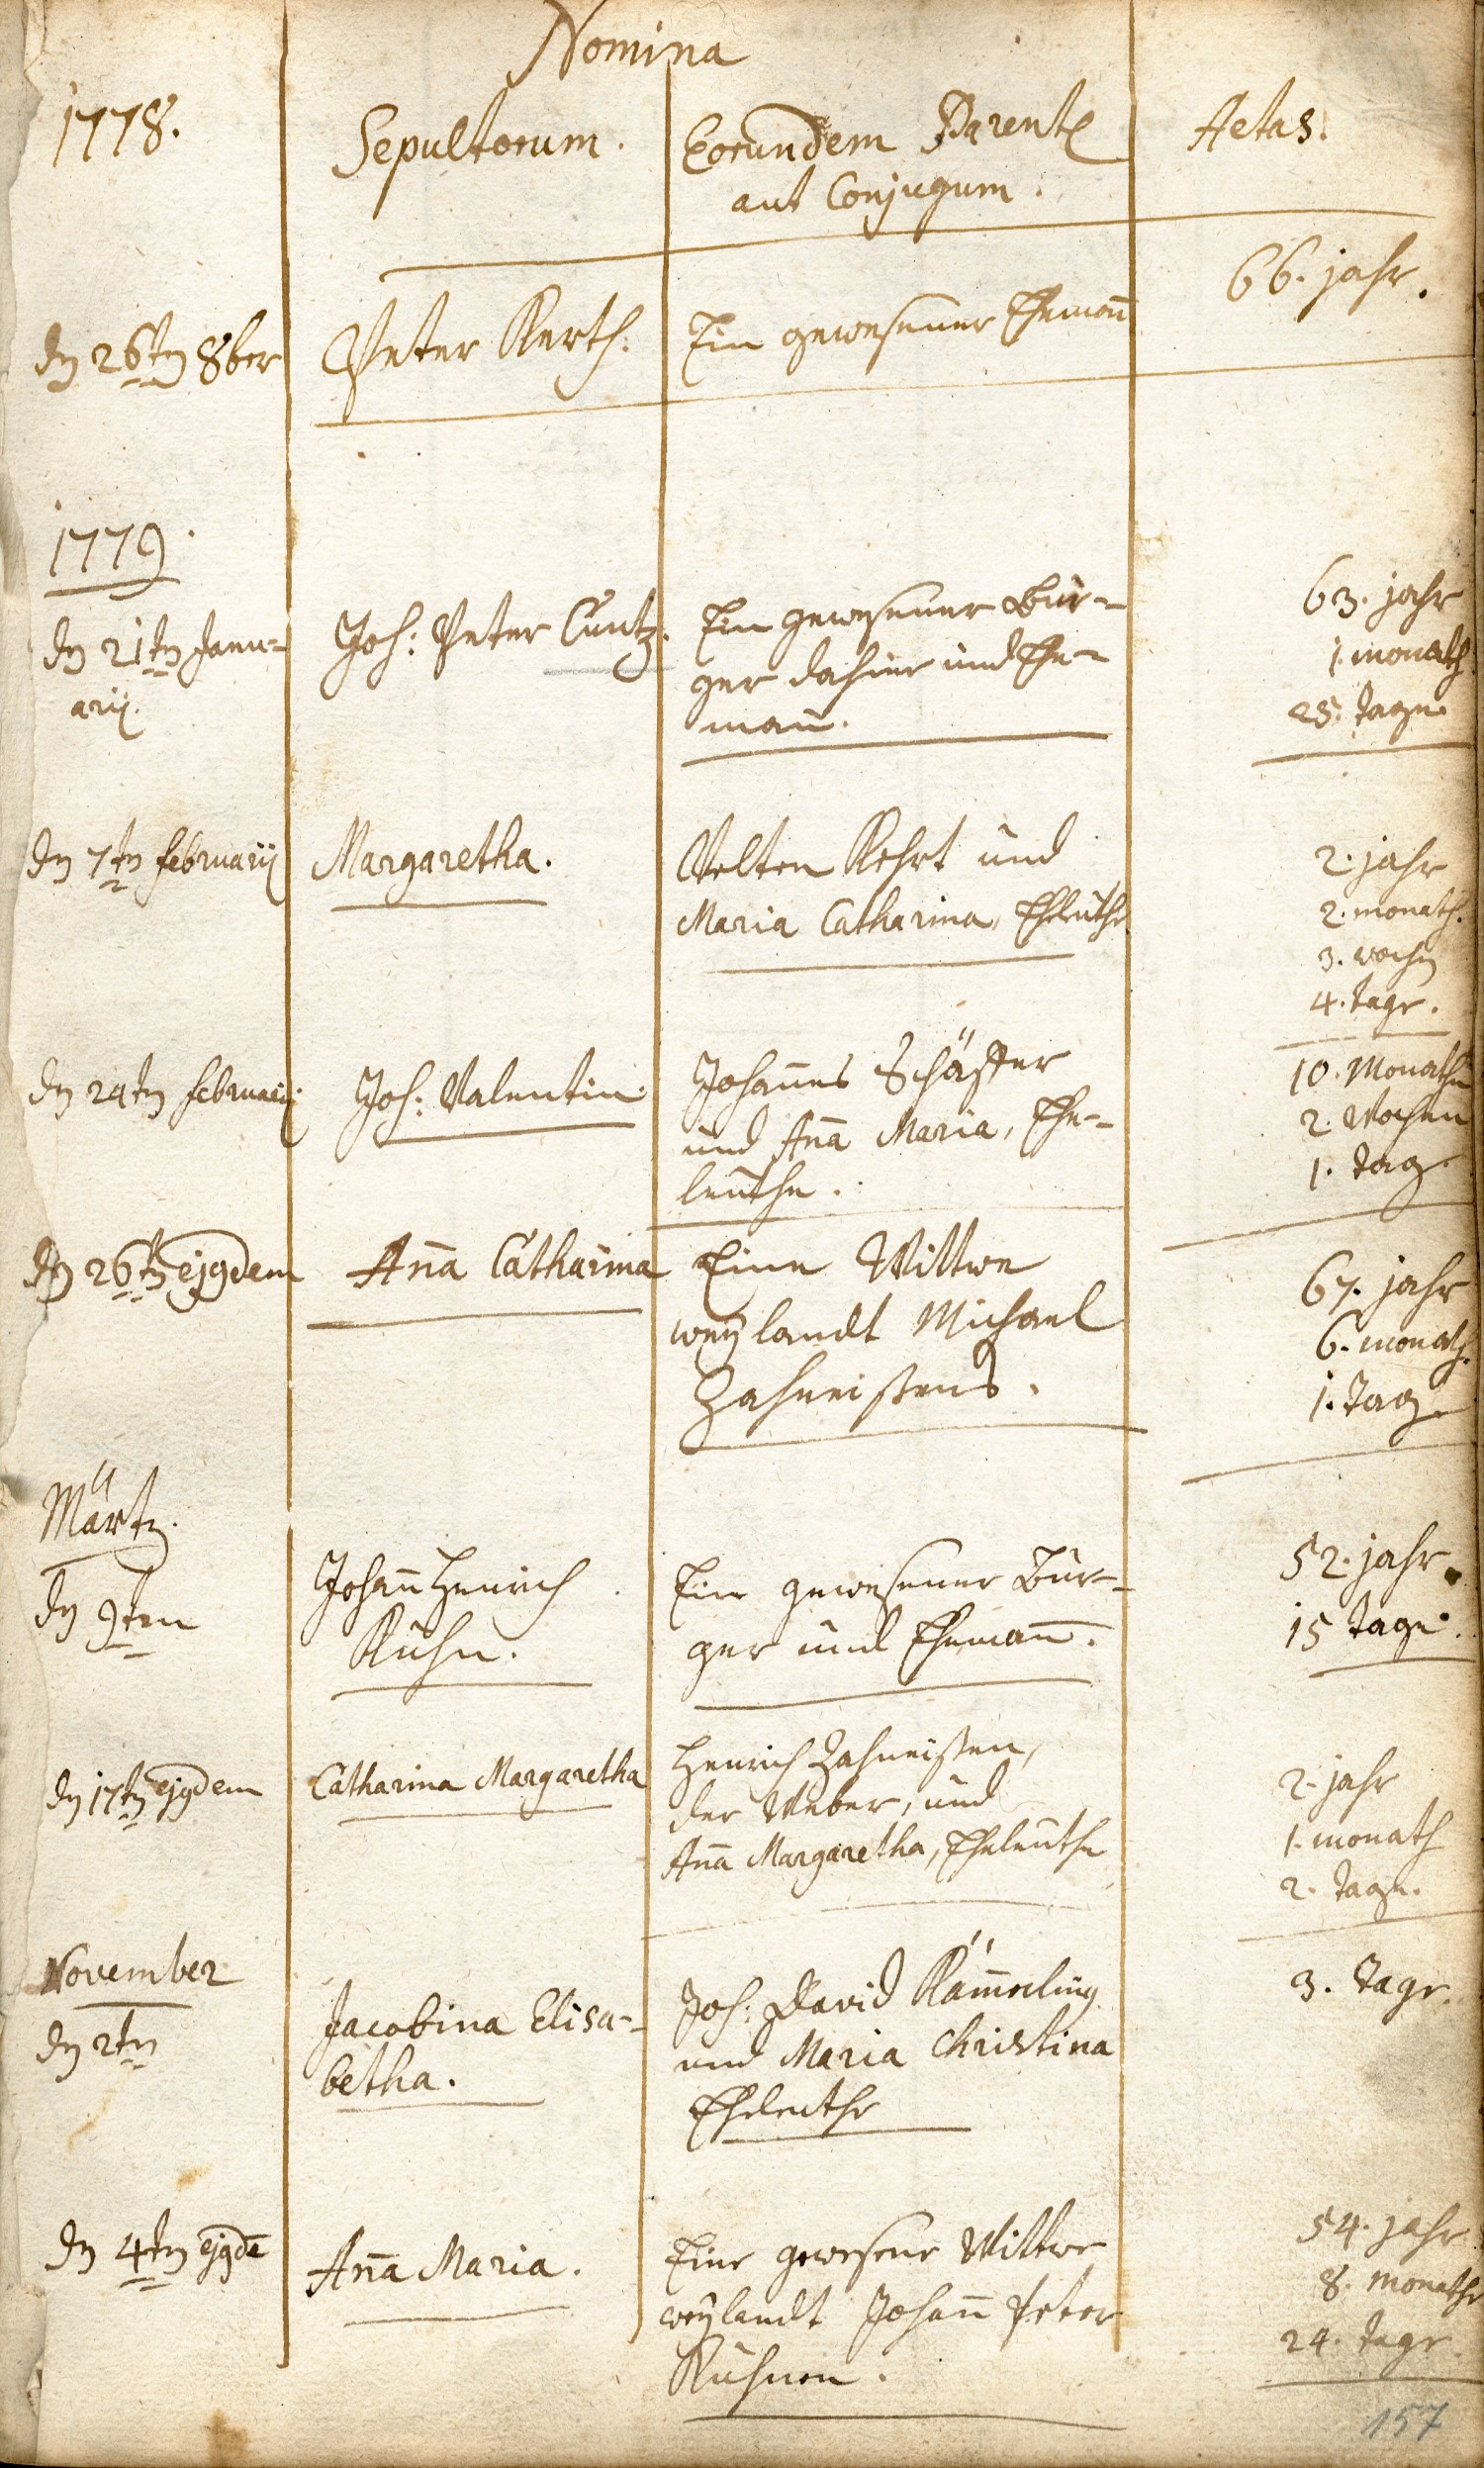 Nomina
1778.
Sepultorum.
Eorundem Parent
aut Conjugum.
Aetas.
den 26ten 8ber
Peter Kerth.
Ein gewesener Ehemañ
66. jahr.
1779.
den 21ten Janu-
arij.
Joh: Peter Cuntz.
Ein gewesener Bür-
ger dahier und Ehe-
mañ.
63. jahr
1. monath
25. tage
den 7ten februarij
Margaretha.
Velten Kehrt und
Maria Catharina, Eheleuthe
2. jahr
2. monath.
3. wochen
4. tage.
den 24ten februarij
Joh: Valentin.
Johañes Schäffer
und Aña Maria, Ehe-
leuthe.
10. Monathe
2. Wochen
1. tag
den 26ten ejusdem
Aña Catharina
Eine Wittwe
weylandt Michael
Zahneissens.
67. jahr
6. monath.
1. tag
Märtz.
den 9ten
Johañ Henrich
Kuhn.
Ein gewesener Bür-
ger und Ehemañ.
52. jahr.
15 tage.
den 17ten ejusdem
Catharina Margaretha
Henrich Zahneissen,
der Weber, und
Aña Margaretha, Eheleuthe
2. jahr
1. monath
2. tage.
November
den 2ten
Jacobina Elisa-
betha.
Joh: David Kämerling
und Maria Christina
Eheleuthe
3. tage.
den 4ten ejusdem
Aña Maria.
Eine gewesene Wittwe
weylandt Johañ Peter
Kuhnen.
54. jahr
8. monathe
24. tage
157